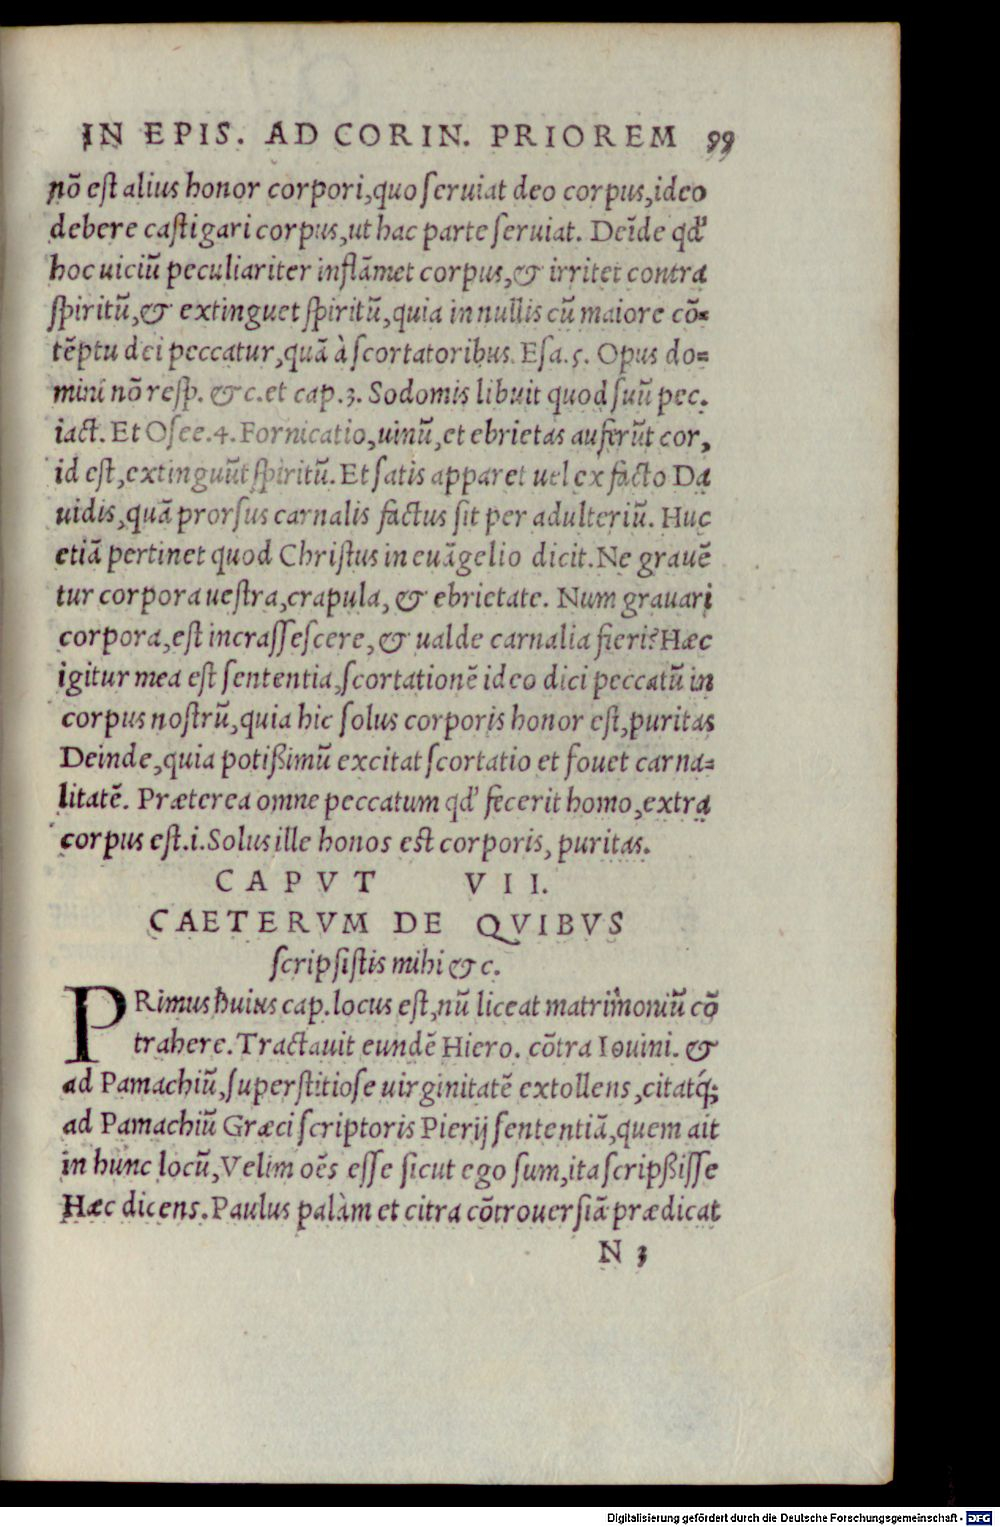 IN EPIS. AD CORIN. PRIOREM 99
nō est alius honor corpori, quo seruiat deo corpus, ideo
debere castigari corpus, ut hac parte seruiat. Deīde qd'
hoc uiciū peculiariter inflāmet corpus, & irritet contra
spiritū, & extinguet spiritū, quia in nullis cū maiore cō-
tēptu dei peccatur, quā à scortatoribus. Esa. 5. Opus do=
mini nō resp. &c. et cap. 3. Sodomis libuit quod suū pec.
iact. Et Osee. 4. Fornicatio, uinū, et ebrietas auferūt cor,
id est, extinguūt spiritū. Et satis apparet uel ex facto Da
uidis, quā prorsus carnalis factus sit per adulteriū. Huc
etiā pertinet quod Christus in euāgelio dicit. Ne grauē
tur corpora uestra, crapula, & ebrietate. Num grauari
corpora, est incrassescere, & ualde carnalia fieri? Hæc
igitur mea est sententia, scortationē ideo dici peccatū in
corpus nostrū, quia hic solus corporis honor est, puritas
Deinde, quia potißimū excitat scortatio et fouet carna=
litatē. Præterea omne peccatum qd' fecerit homo, extra
corpus est. i. Solus ille honos est corporis, puritas.
CAPVT VII.
CAETERVM DE QVIBVS
scripsistis mihi &c.
PRimus huius cap. locus est, nū liceat matrimoniū cō
trahere. Tractauit eundē Hiero. cōtra Iouini. &
ad Pamachiū, superstitiose uirginitatē extollens, citatq́;
ad Pamachiū Græci scriptoris Pierij sententiā, quem ait
in hunc locū, Velim oēs esse sicut ego sum, ita scripßisse
Hæc dicens. Paulus palàm et citra cōtrouersiā prædicat
N 3
Digitalisierung gefördert durch die Deutsche Forschungsgemeinschaft - DFG